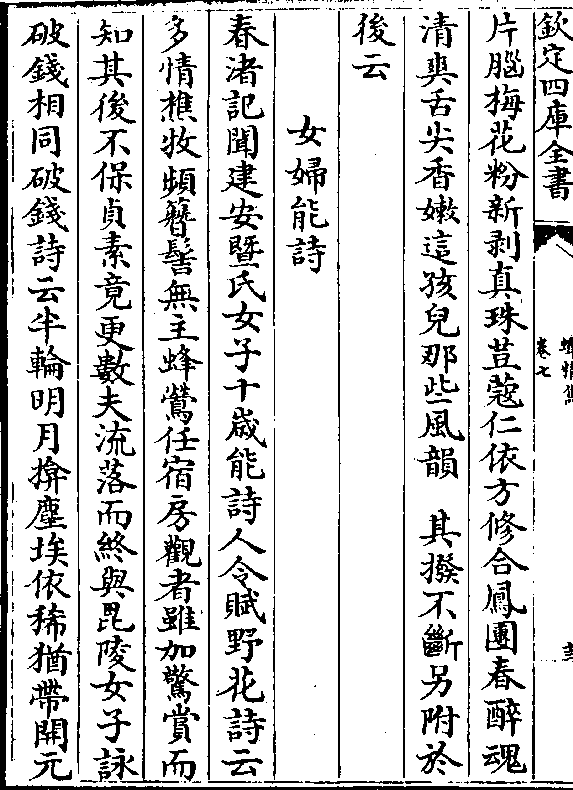 欽定四庫全書
蟫精雋
卷七
片腦梅花粉新剥真珠荳蔻仁依方修合鳳團春醉魂
清爽舌尖香嫩這孩兒那些風韻　其撥不斷另附於
後云
女婦能詩
春渚記聞建安暨氏女子十歲能詩人令賦野花詩云
多情樵牧頻簪髻無主蜂鶯任宿房觀者雖加驚賞而
知其後不保貞素竟更數夫流落而終與毘陵女子詠
破錢相同破錢詩云半輪明月揜塵埃依稀猶帶開元